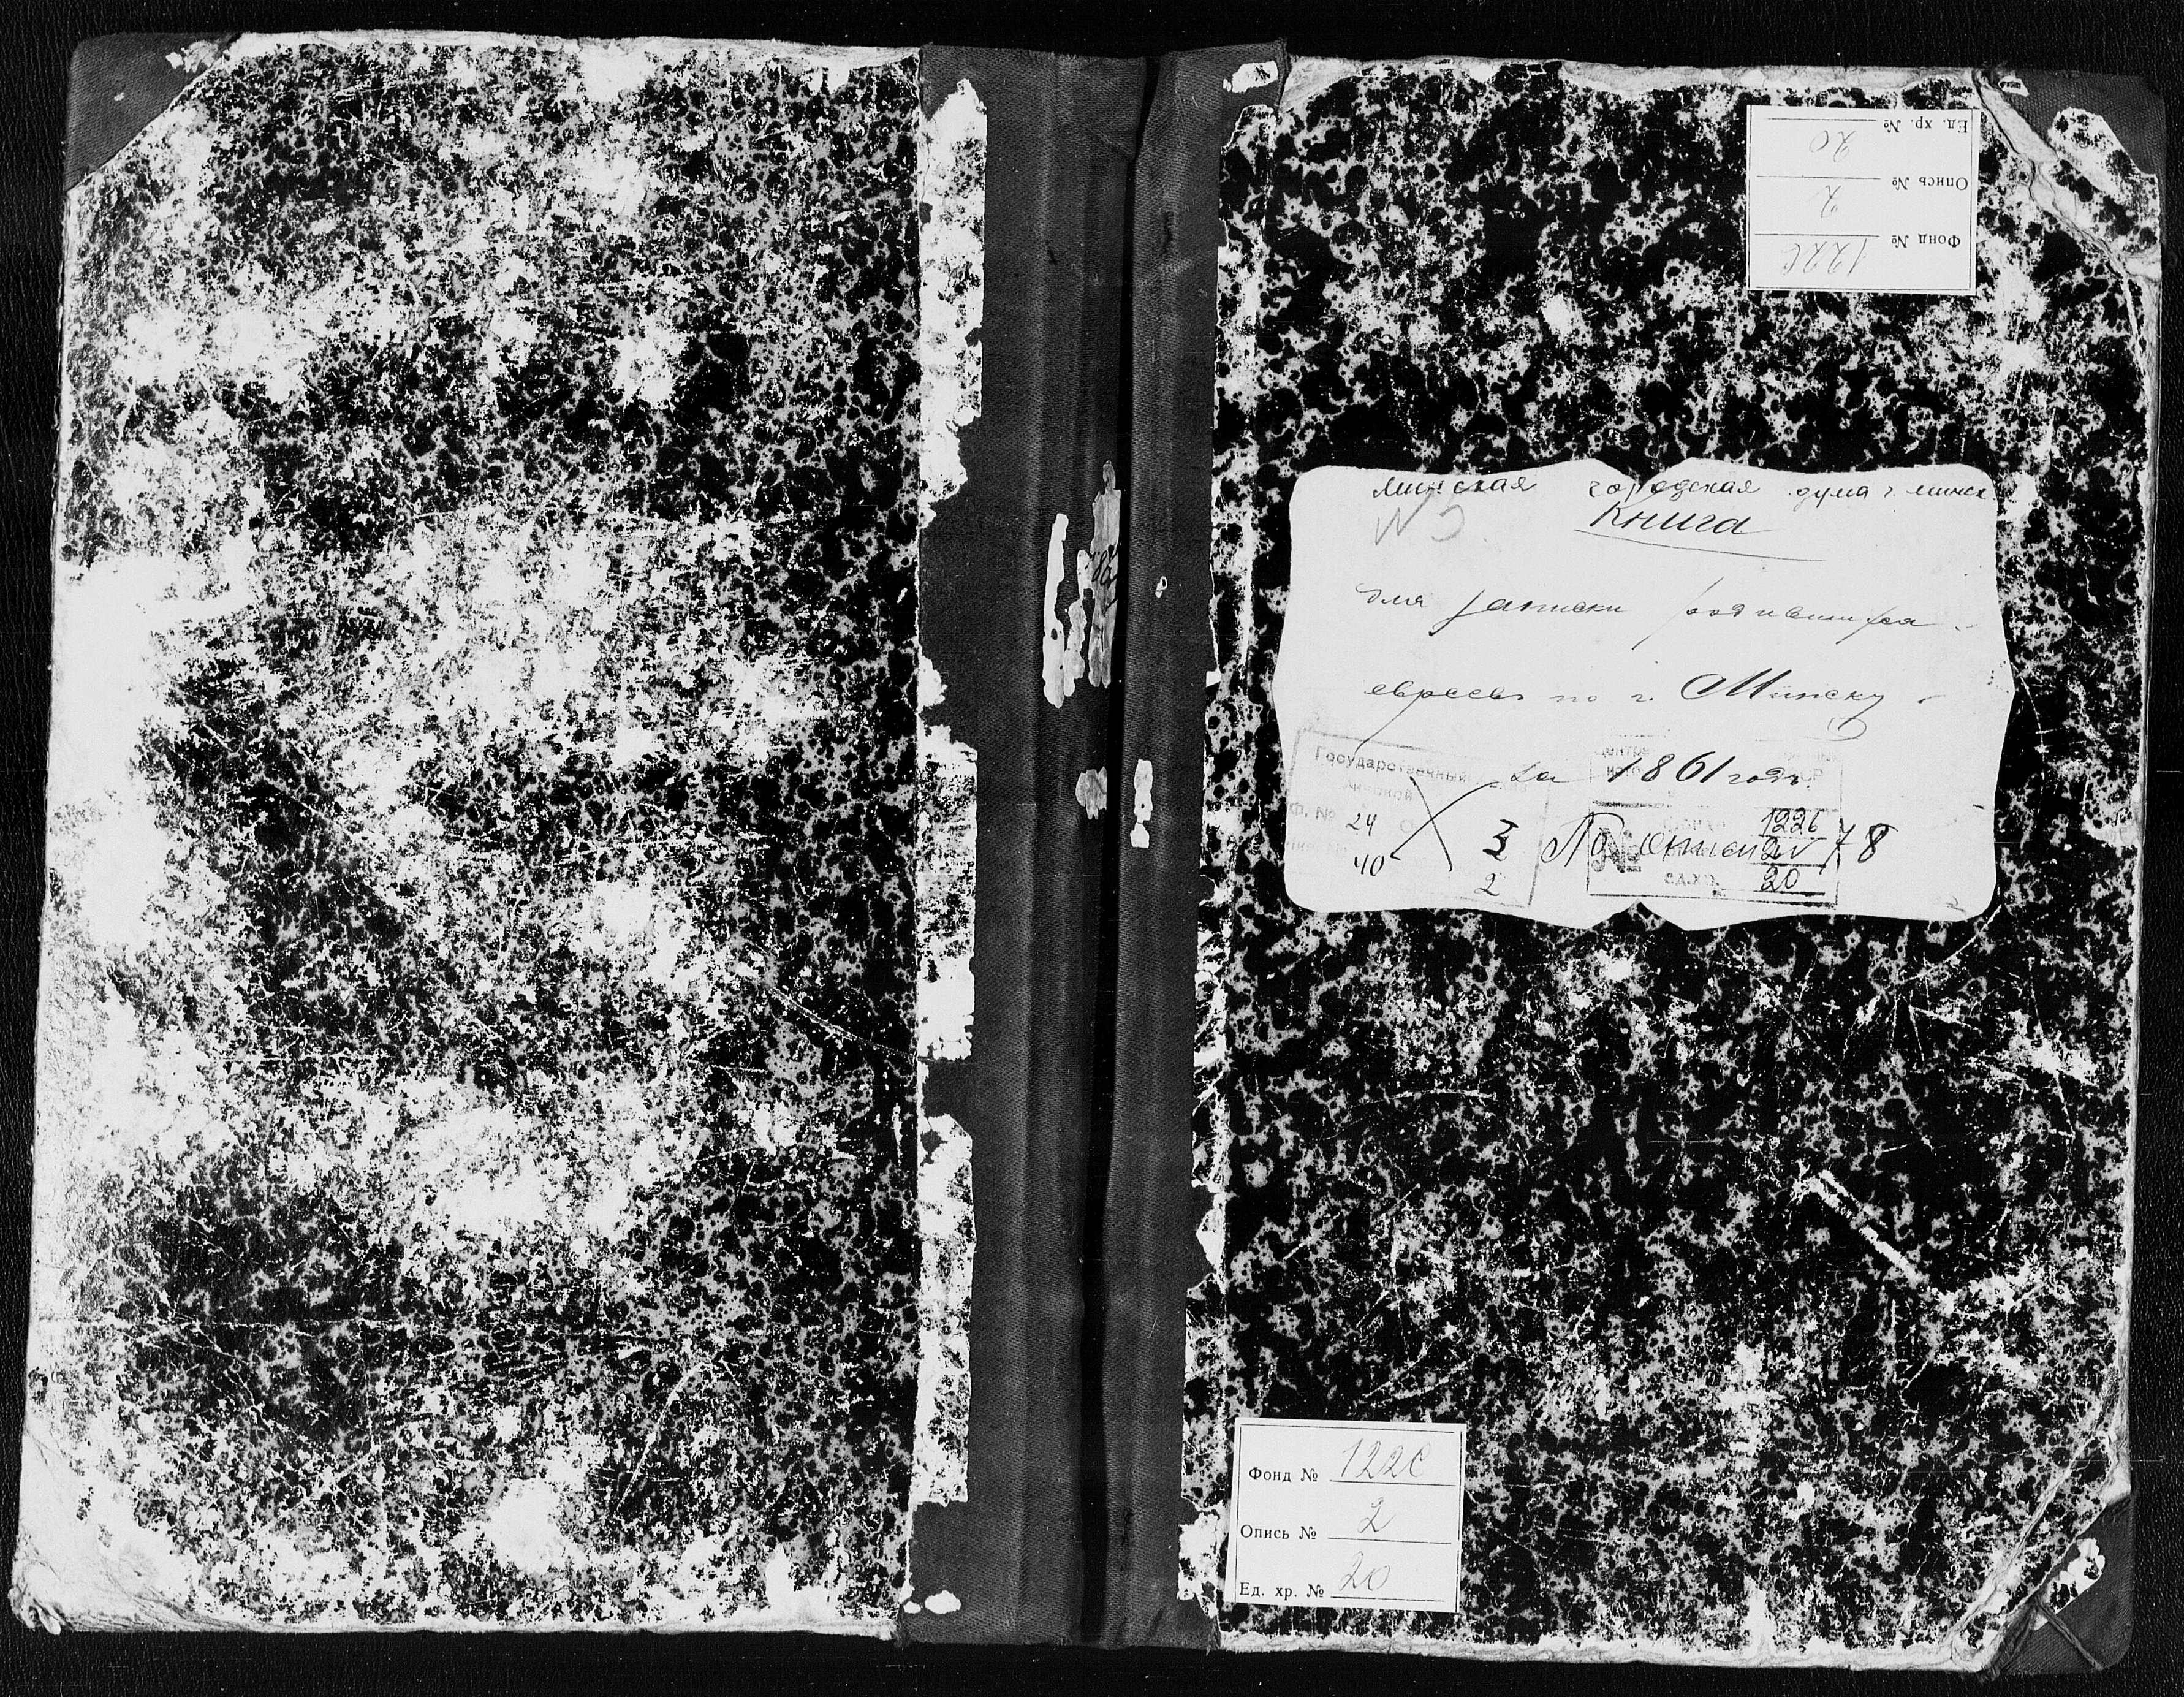 Ед. хр. № 20
Опись № 2
Фонд № 1226
Минская городская дума г. Минск
Книга
для записки родившихся
евреевъ по г. Минску
за 1861 годъ.
Государственный
Ф. № 24
40
3
2
1226
По описи 2 № 78
ед.хр. 20
Фонд № 1226
Опись № 2
Ед. хр. № 20